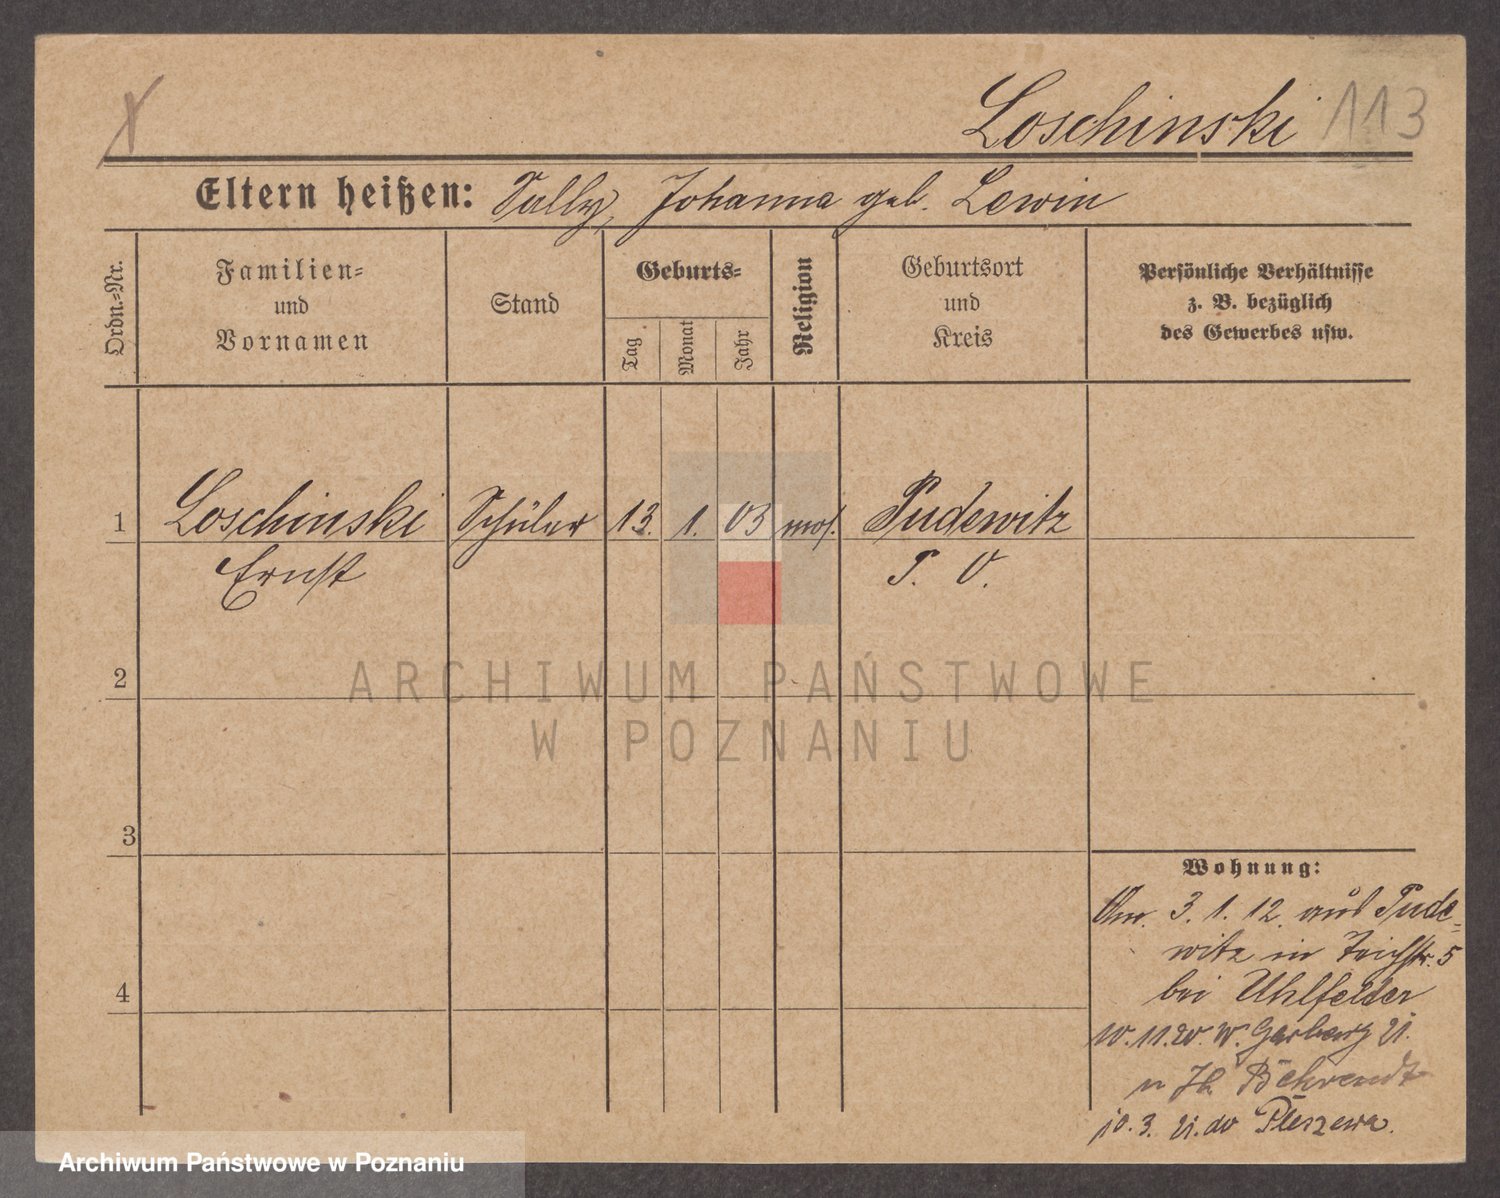 Loschinski 113
Eltern heißen: Sally, Johanna geb. Lewin
Ordn.-Nr.
Familien-
und
Vornamen
Stand
Geburts-
Tag
Monat
Jahr
Religion
Geburtsort
und
Kreis
Persönliche Verhältnisse
z. B. bezüglich
des Gewerbes usw.
1 Loschinski Schüler 13. 1. 03 mos. Pudewitz
Ernst P. O.
2
3
4
Wohnung:
Anr. 3. 1. 12. aus Pude-
witz in Teichstr. 5
bei Uhlfelder
10.11.20. W. Garbary 21.
u Behrendt
10. 3. 21. do Pleszewa.
ARCHIWUM PAŃSTWOWE
W POZNANIU
Archiwum Państwowe w Poznaniu